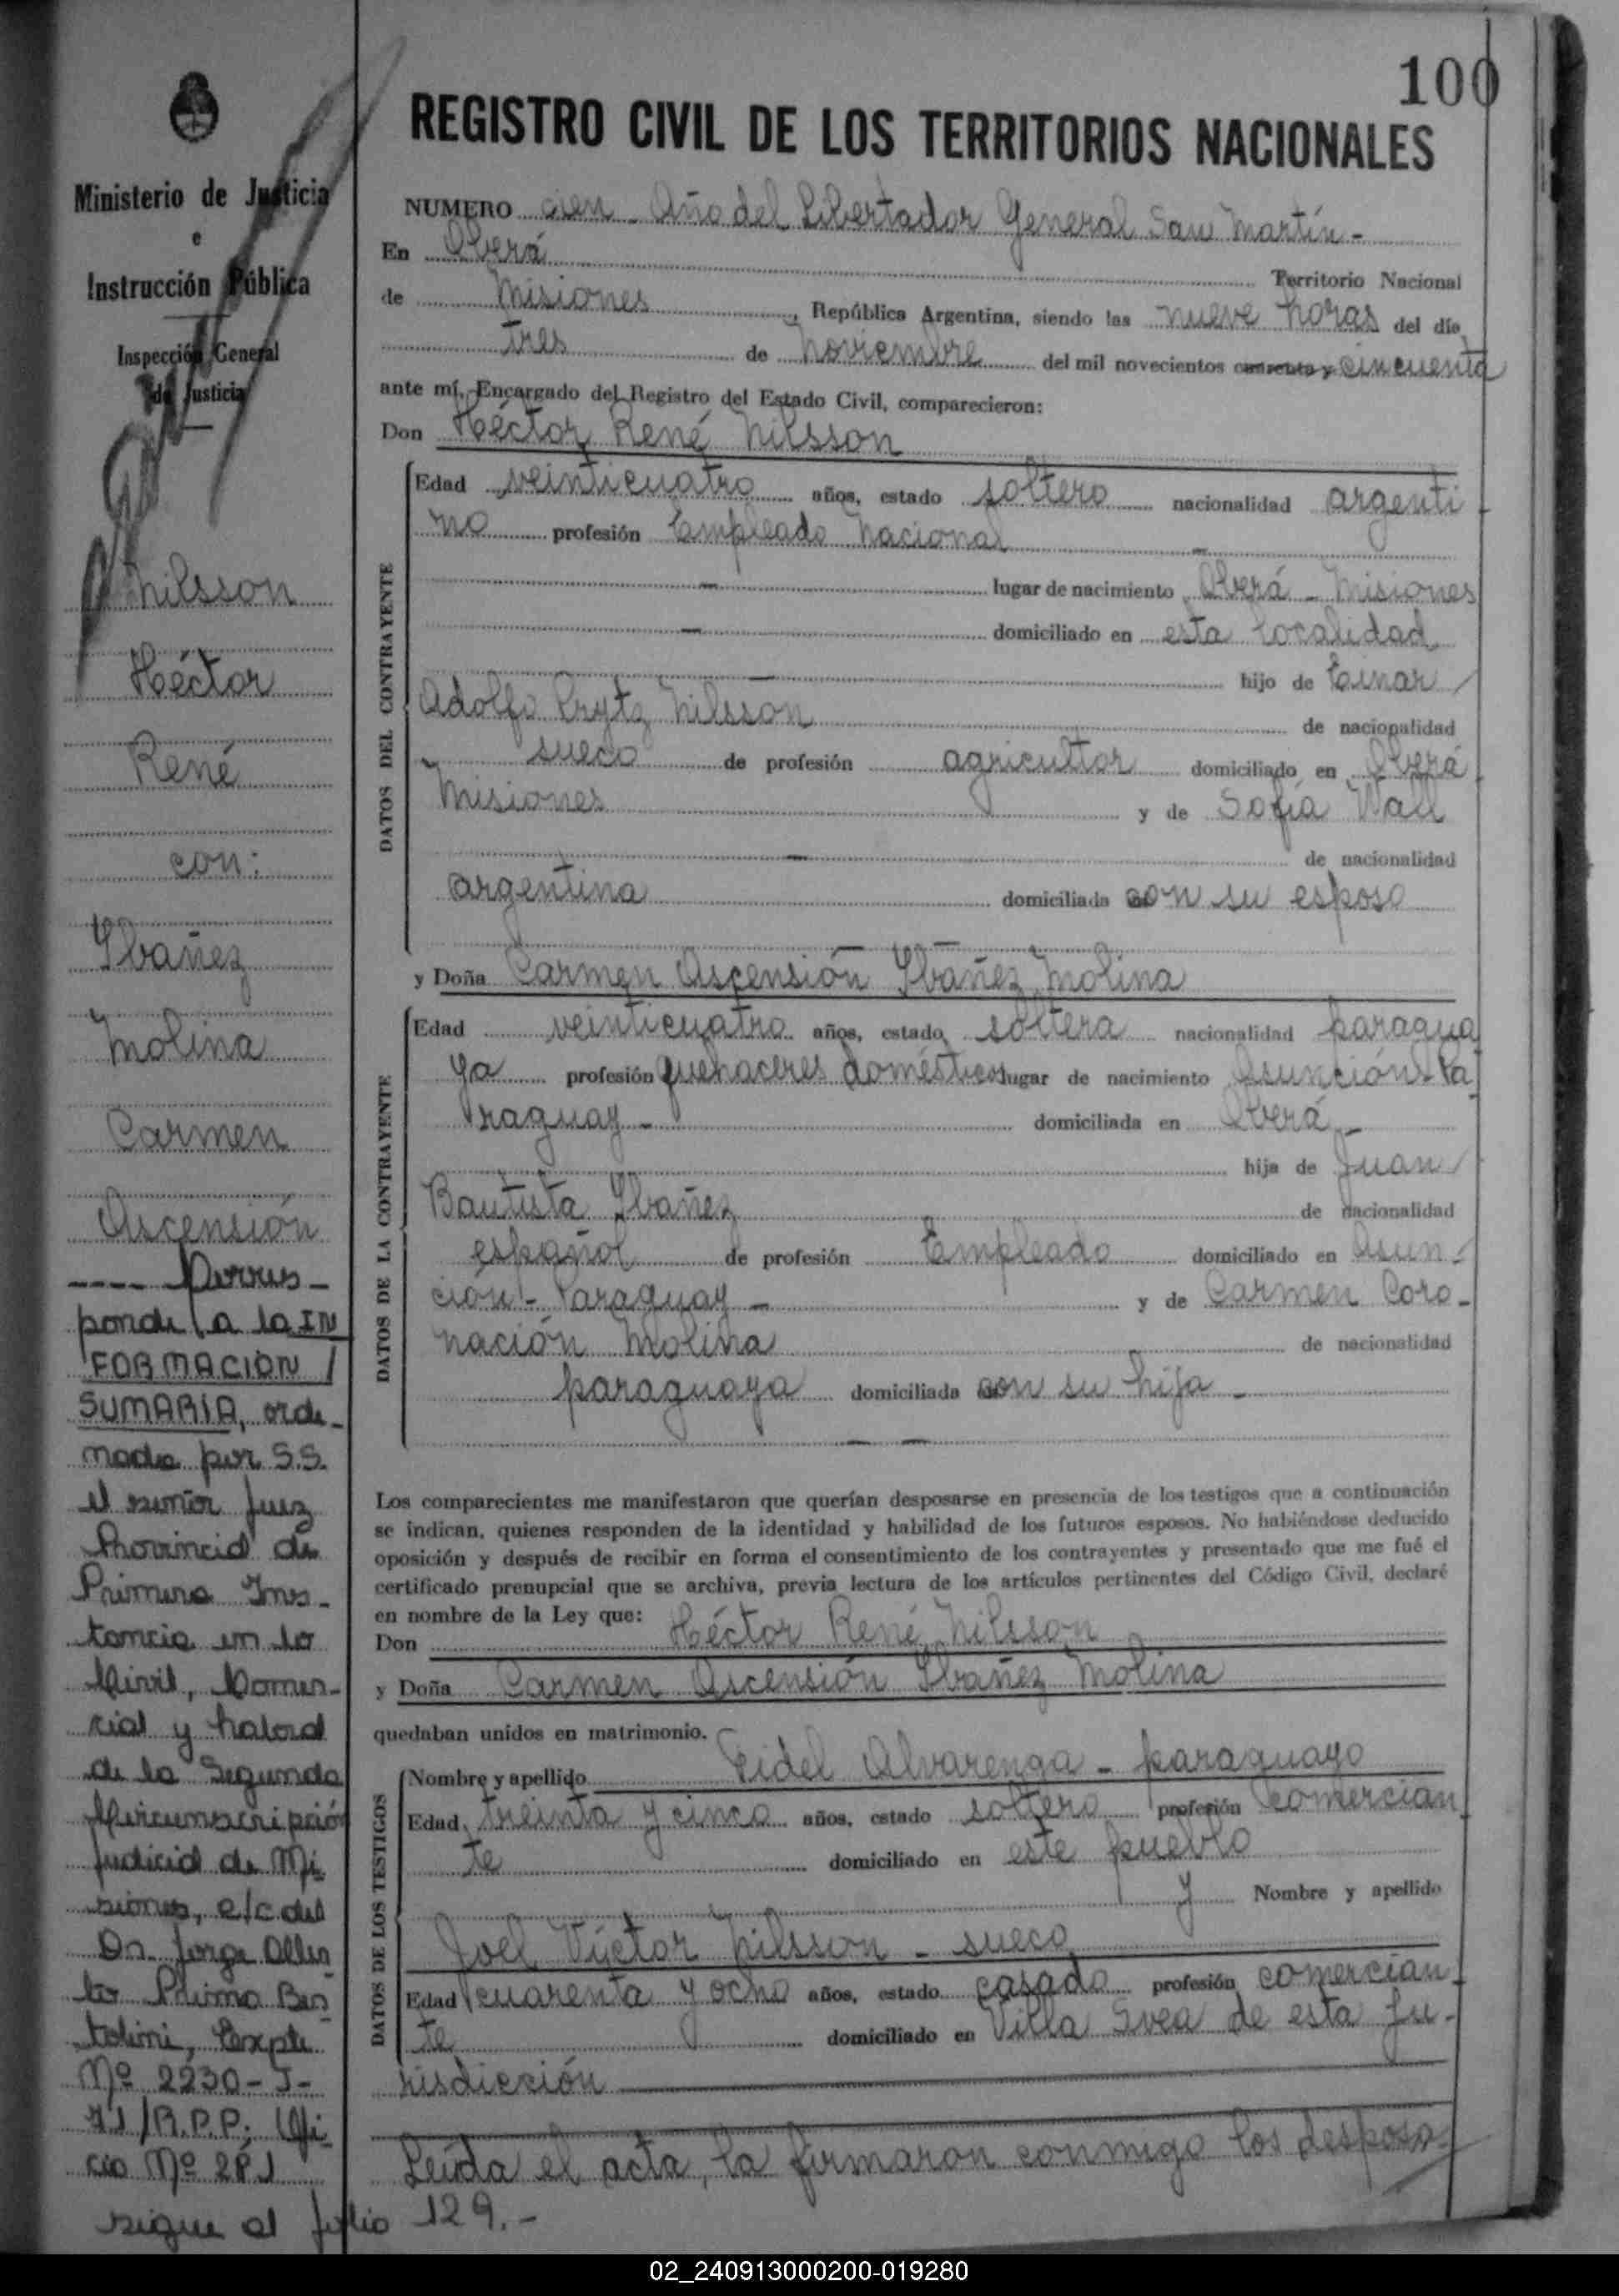 100
REGISTRO CIVIL DE LOS TERRITORIOS NACIONALES
Ministerio de Justicia
e
Instrucción Pública
Inspección General
de Justicia
Nilsson
Héctor
René
con:
Ybañez
Molina
Carmen
Ascensión
---- Corres-
ponde a la IN
FORMACION
SUMARIA, orde-
nada por S.S.
el señor Juez
Provincial de
Primera Ins-
tancia en lo
Civil, Comer-
cial y Laboral
de la Segunda
Circunscripción
Judicial de Mi
siones, a/c del
Dr. Jorge
Primo
Expte.
Nº 2230-J-
71/R.P.P; Ofi
cio Nº
sigue al folio 129.-
NUMERO cien - Año del Libertador General San Martín -
En Oberá Territorio Nacional
de Misiones, República Argentina, siendo las nueve horas del día
tres de noviembre del mil novecientos cuarenta y cincuenta
ante mí, Encargado del Registro del Estado Civil, comparecieron:
Don Héctor René Nilsson
DATOS DEL CONTRAYENTE
Edad veinticuatro años, estado soltero nacionalidad argenti
no profesión Empleado Nacional -
- lugar de nacimiento Oberá - Misiones
- domiciliado en esta localidad
- hijo de Einar
Adolfo Prytz Nilsson de nacionalidad
sueco de profesión agricultor domiciliado en Oberá
Misiones y de Sofía Wall
- de nacionalidad
argentina domiciliada con su esposo
y Doña Carmen Ascensión Ybañez Molina
DATOS DE LA CONTRAYENTE
Edad veinticuatro años, estado soltera nacionalidad paragua
ya profesión quehaceres domésticos lugar de nacimiento Asunción Pa
raguay - domiciliada en Oberá -
hija de Juan
Bautista Ybañez de nacionalidad
español de profesión Empleado domiciliado en Asun-
ción - Paraguay - y de Carmen Coro-
nación Molina de nacionalidad
paraguaya domiciliada con su hija -
Los comparecientes me manifestaron que querían desposarse en presencia de los testigos que a continuación
se indican, quienes responden de la identidad y habilidad de los futuros esposos. No habiéndose deducido
oposición y después de recibir en forma el consentimiento de los contrayentes y presentado que me fué el
certificado prenupcial que se archiva, previa lectura de los artículos pertinentes del Código Civil, declaré
en nombre de la Ley que:
Don Héctor René Nilsson
y Doña Carmen Ascensión Ybañez Molina
quedaban unidos en matrimonio.
DATOS DE LOS TESTIGOS
Nombre y apellido Fidel Alvarenga - paraguayo
Edad treinta y cinco años, estado soltero profesión Comercian
te domiciliado en este pueblo
y Nombre y apellido
Joel Víctor Nilsson - sueco
Edad cuarenta y ocho años, estado casado profesión comercian
te domiciliado en Villa Svea de esta ju-
risdicción
Leída el acta, la firmaron conmigo los desposa
02_240913000200-019280